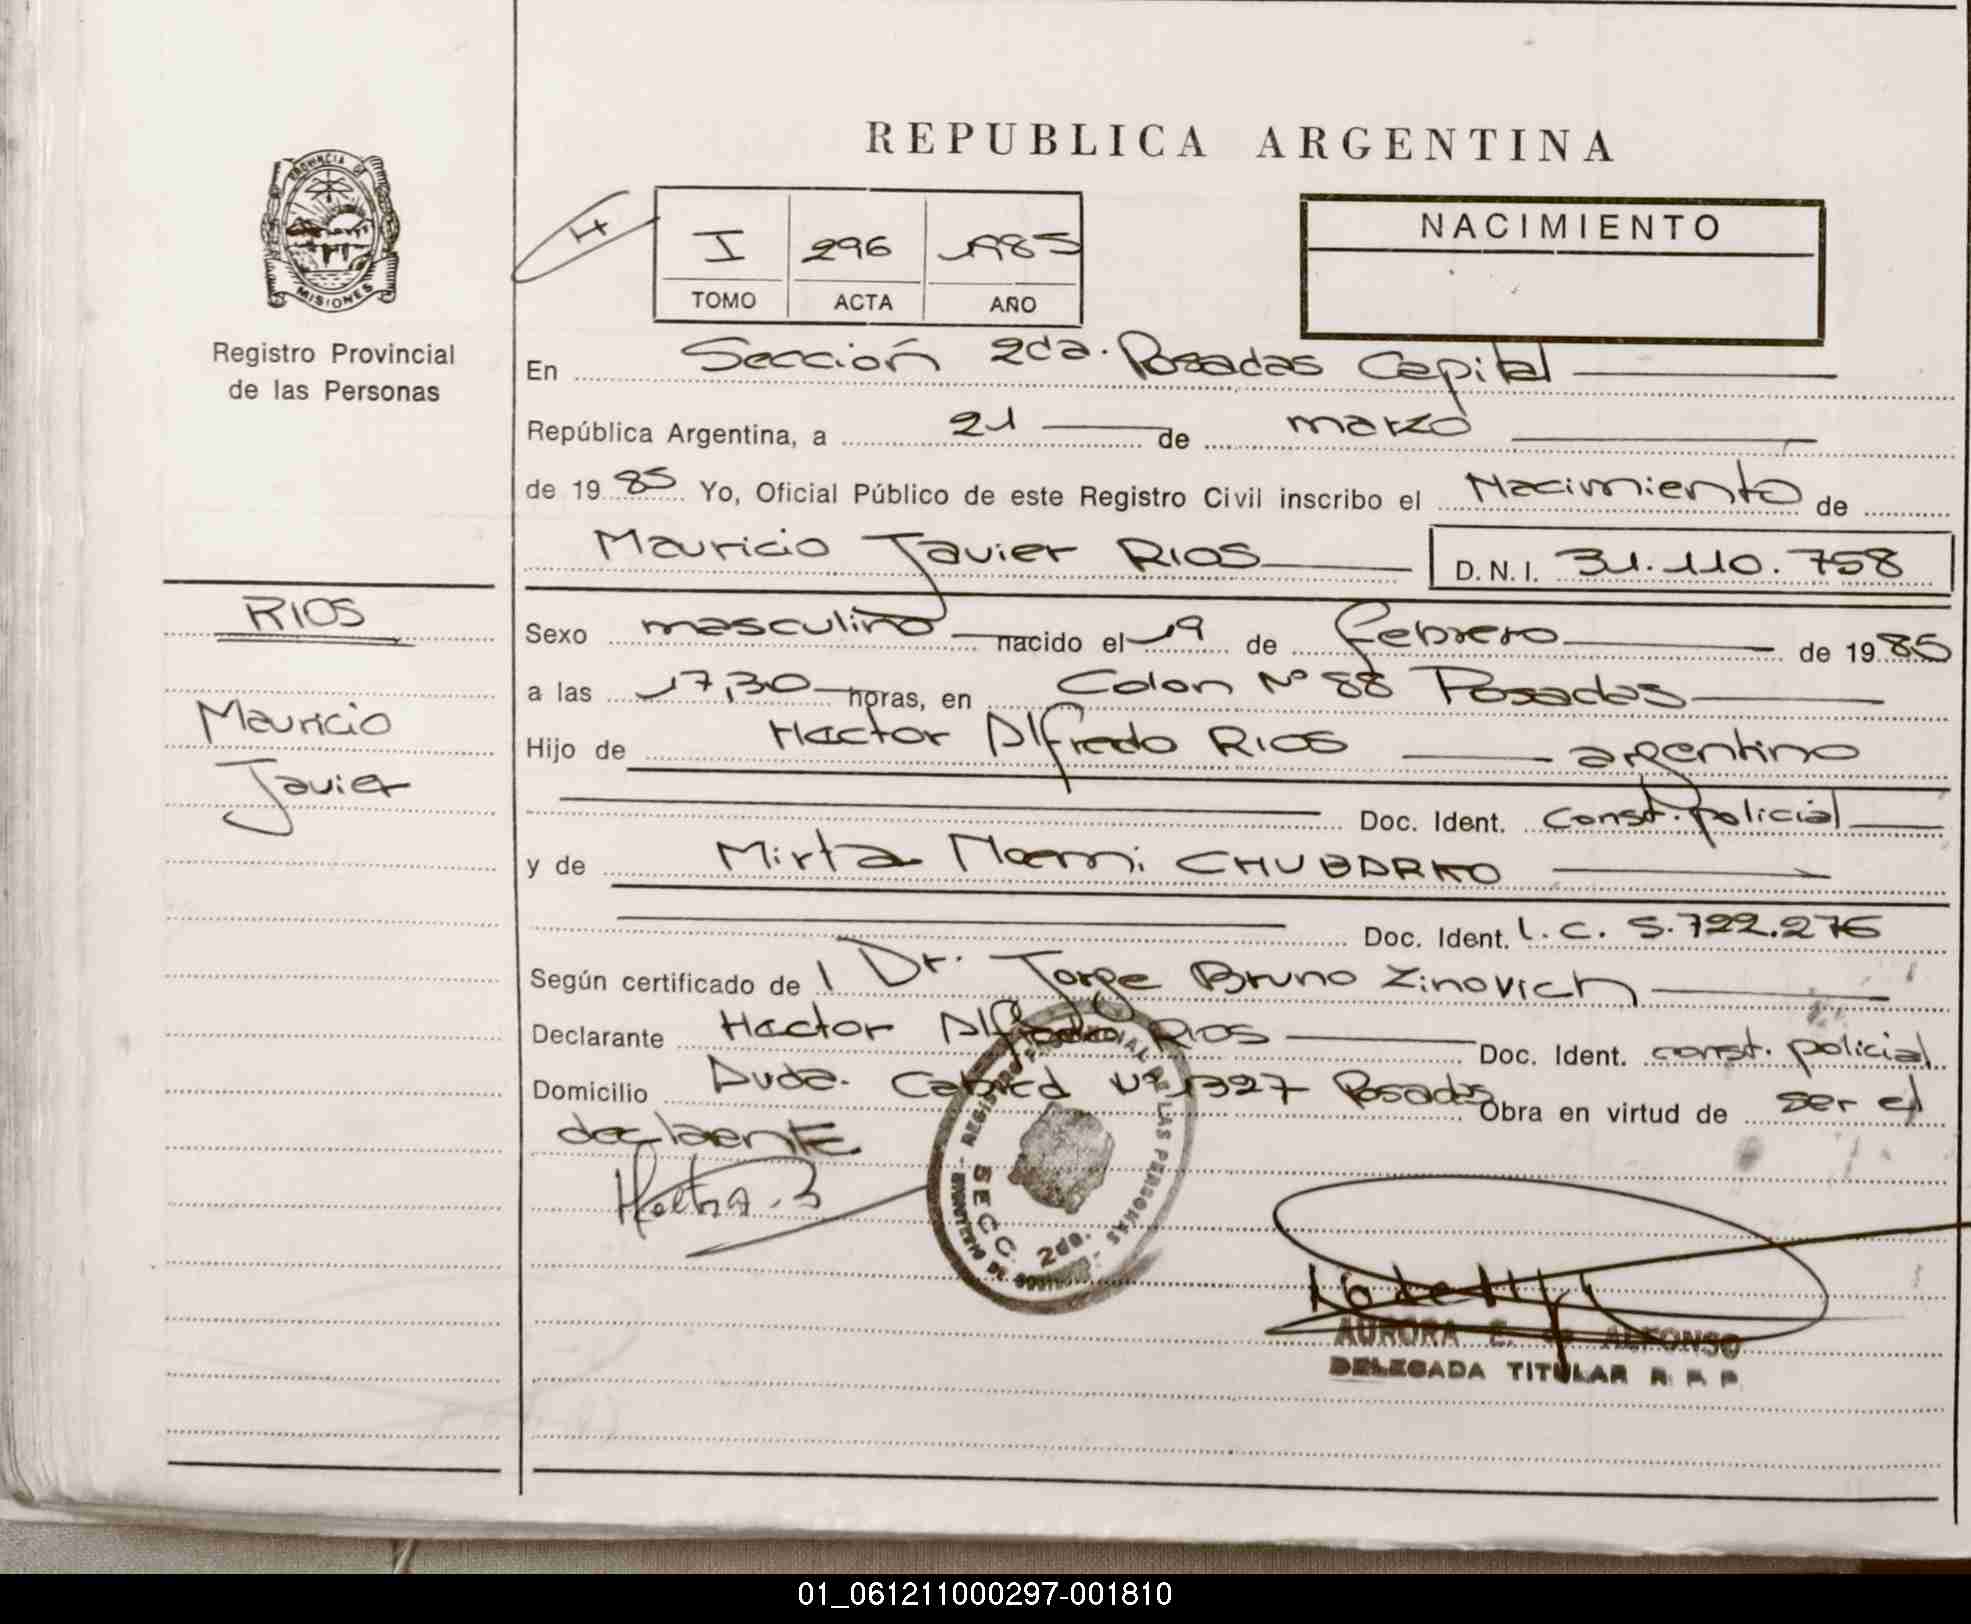 REPUBLICA ARGENTINA
PROVINCIA DE
MISIONES
Registro Provincial
de las Personas
I 296 1985
TOMO ACTA AÑO
NACIMIENTO
En Sección 2da. Posadas Capital
República Argentina, a 21 de marzo
de 1985 Yo, Oficial Público de este Registro Civil inscribo el Nacimiento de
Mauricio Javier RIOS D.N.I. 31.110.758
RIOS
Mauricio
Javier
Sexo masculino nacido el 19 de febrero de 1985
a las 17,30 horas, en Colon Nº 88 Posadas
Hijo de Hector Alfredo RIOS argentino
Doc. Ident. Const. policial
y de Mirta Noemi CHUBARKO
Doc. Ident. L.C. 5.722.276
Según certificado de l Dr. Jorge Bruno Zinovich
Declarante Hector Alfredo RIOS Doc. Ident. const. policial
Domicilio Avda. Cabred Nº 1327 Posadas Obra en virtud de ser el
declarante
REGISTRO PROVINCIAL DE LAS PERSONAS
SECC. 2da.
AURORA E. de ALFONSO
DELEGADA TITULAR R. P. P.
01_061211000297-001810